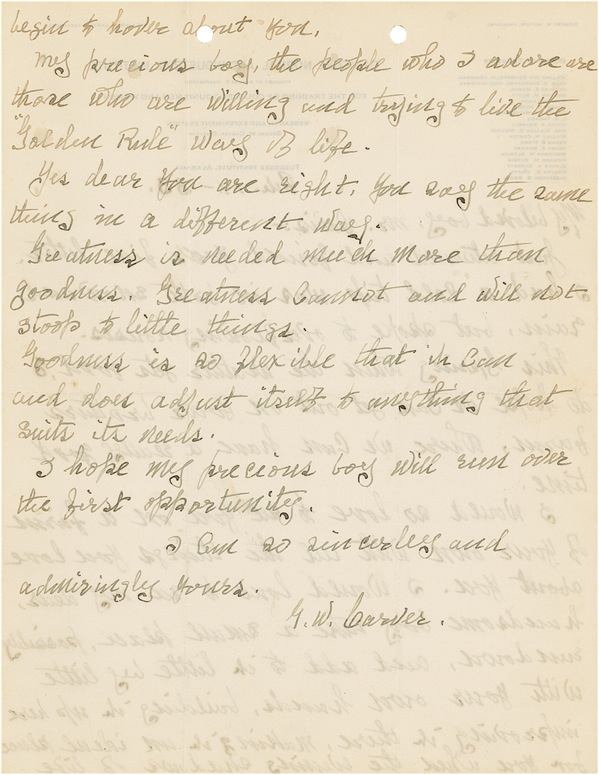 begin to hover about you.
My precious boy, the people who I adore are
those who are willing and trying to live the
"Golden Rule" way of life.
Yes dear you are right, you say the same
thing in a different way.
Greatness is needed much more than
goodness. Greatness cannot and will not
stoop to little things.
Goodness is so flexible that it can
and does adjust itself to anything that
suits its needs.
I hope my precious boy will run over
the first opportunity.
I am so sincerely and
admiringly yours.
G. W. Carver.